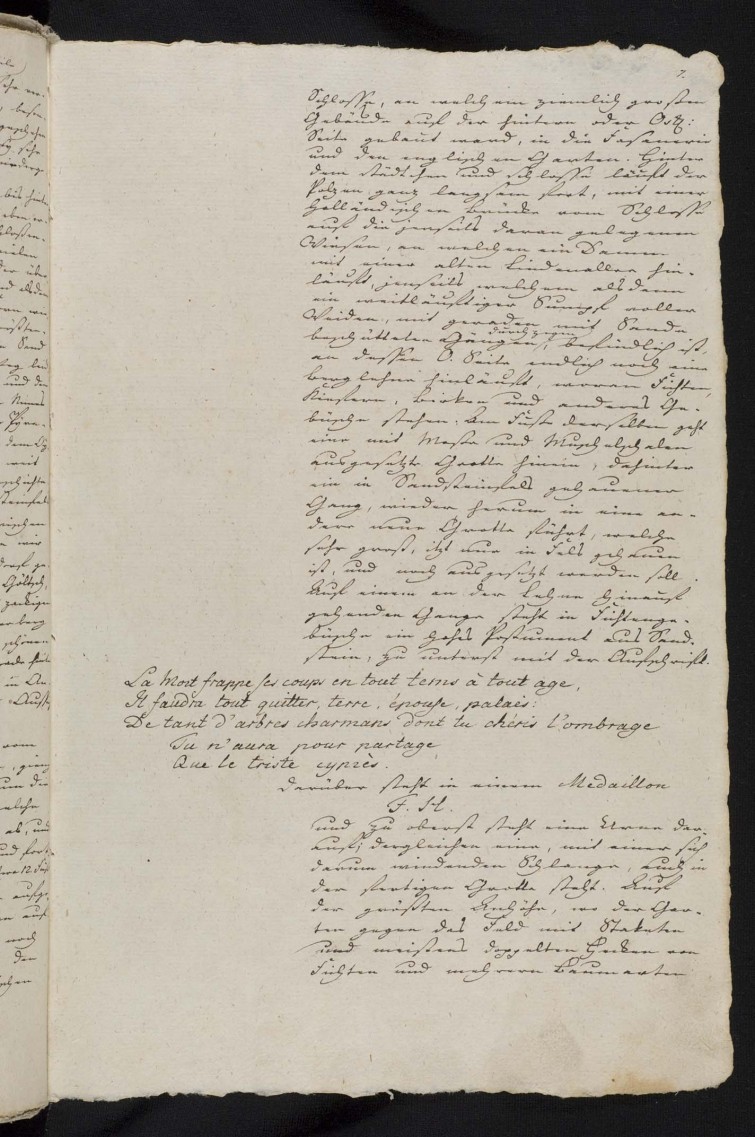 7.
Schlosse, an welchem ziemlich großen
Gebäude auf der hintern oder Ost:
Seite gebaut ward, in die Fasanerie
und den englischen Garten. Hinter
dem Städtchen und Schlosse läuft der
Polzen ganz langsam fort, mit einer
holländischen Brücke vom Schlosse
auf die jenseits daran gelegenen
Wiesen, an welchen ein Damm
mit einer alten Lindenallee hin-
läuft, jenseits welchem alsdenn
ein weitläuftiger Sumpf voller
Weiden, mit geraden mit Sande
beschütteten Gängen durchzogen, befindlich ist,
an dessen O. Seite endlich noch eine
Berglehne hinläuft, woran Fichten,
Kiefern, Birken und anderes Ge-
büsche stehen. Am Fuße derselben geht
eine mit Moße und Muschelschalen
ausgesetzte Grotte hinein, dahinter
ein in Sandsteinfels gehauener
Gang, wieder herum in eine an-
dere neue Grotte führt, welche
sehr groß, itzt nur in Fels gehauen
ist, und noch ausgesetzt werden soll.
Auf einem an der Lehne hinauf
gehenden Gange steht in Fichtenge-
büsche ein hohes Postument aus Sand-
stein, zu unterst mit der Aufschrift.
La Mort frappe ses coups en tout tems à tout age,
Il faudra tout quitter, terre, épouse, palais:
De tant d'arbres charmans dont tu chéris l'ombrage
Tu n'aura pour partage
Que le triste cyprès.
darüber steht in einem Medaillon
F. H.
und zu oberst steht eine Urne dar-
auf; dergleichen eine, mit einer sich
darum windenden Schlange, auch in
der fertigen Grotte steht. Auf
der größten Anhöhe, wo der Gar-
ten gegen das Feld mit Staketen
und meistens doppelten Hecken von
Fichten und mehrern Baumarten